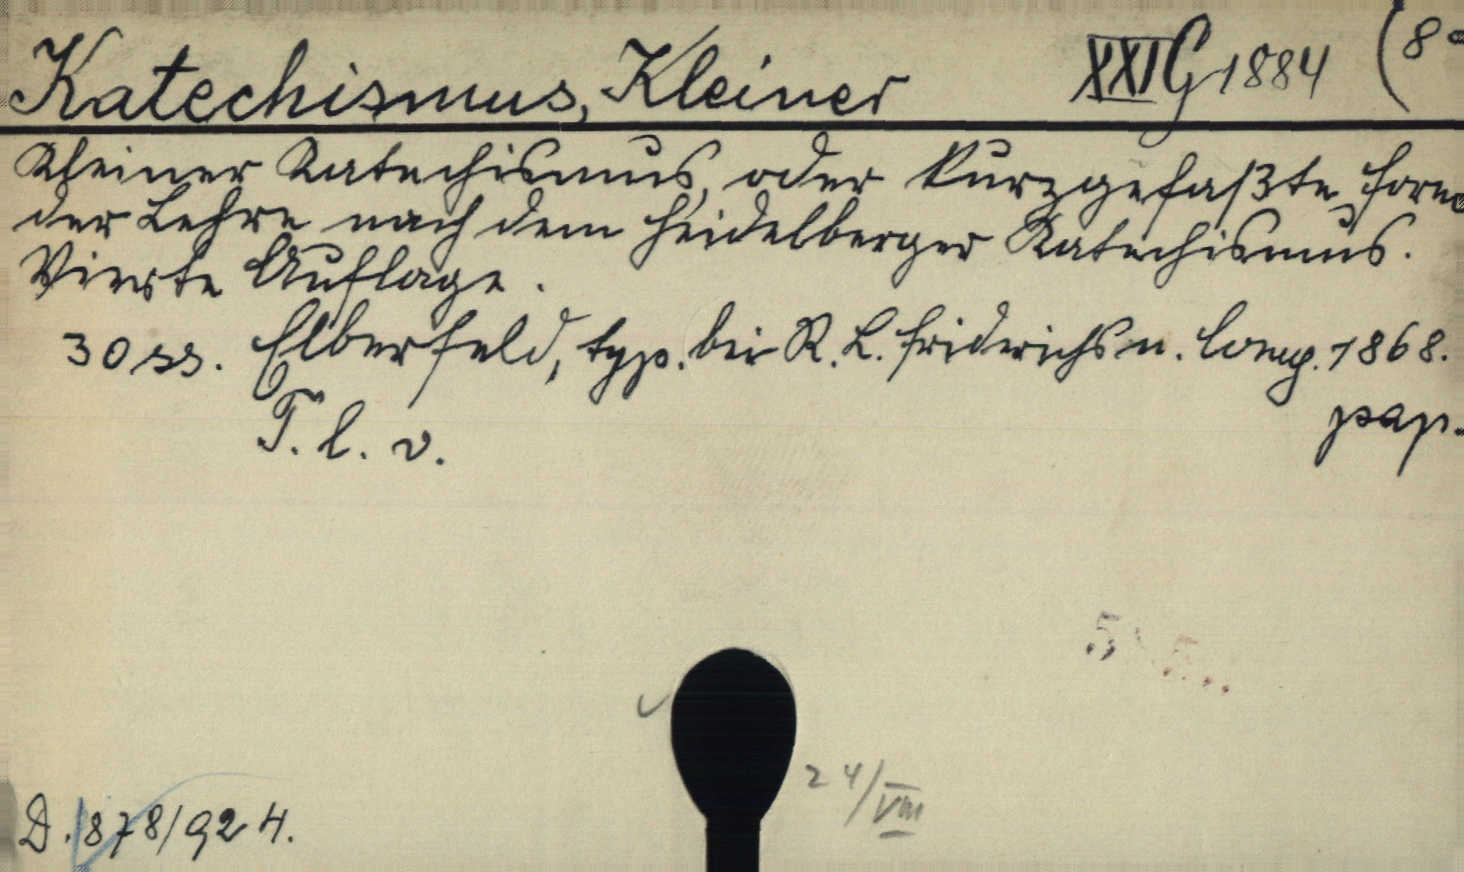 Katechismus, Kleiner XXI G 1884 (8°
Kleiner Katechismus, oder kurzgefaßte Form
der Lehre nach dem Heidelberger Katechismus.
Vierte Auflage.
30 ss. Elberfeld, typ. bei R. L. Friderichs u. Comp. 1868.
pap.
T. l. v.
24/VIII
D. 878/924.